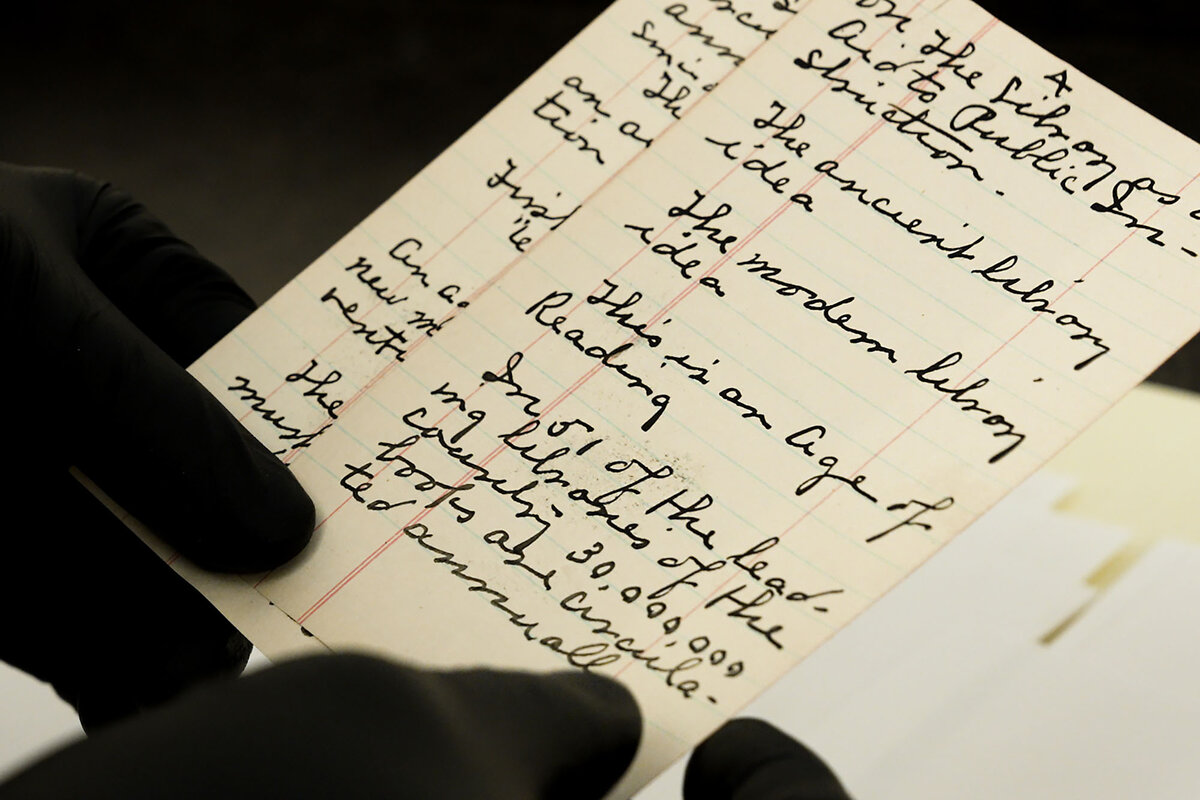 A
on. The Library as a
Aid to Public In-
struction.
The ancient library
idea
The modern library
idea
This is an Age of
Reading
In 51 of the lead-
ing libraries of the
country 30,000,000
books are circula-
ted annually
ann
The
an a
tion
First
An a
new m
venti
The
must